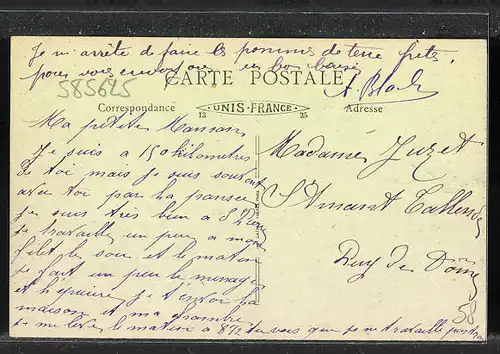 Je m'arrête de faire les pommes de terre frites,
pour vous envoyer un bon baiser
585625
CARTE POSTALE
A. Bloch
Correspondance
UNIS-FRANCE
13 25
Adresse
Ma petite Maman
Je suis a 150 kilometres
De toi mais je suis souvent
avec toi par la pensee
je suis très bien a St Pierre
je travaille un peu a mon
filet le soir et le matin
je fait un peu le menage
et l'epicerie, je t'envoi la
maison et ma chambre,
je me leve le matin a 8½ tu vois que je ne travaille pas trop
Madame Juzet
St Amant Tallende
Puy de Dôme
58